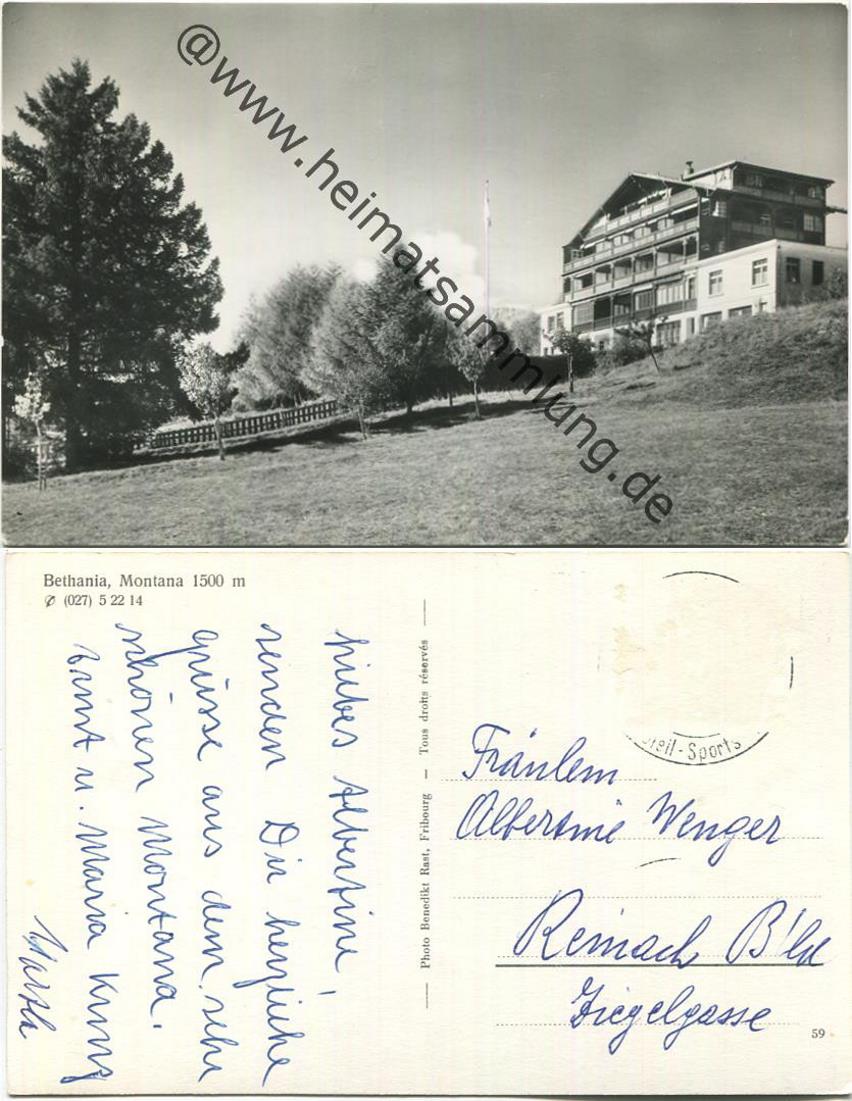 @www.heimatsammlung.de
Bethania, Montana 1500 m
✆ (027) 5 22 14
Liebes Albertine!
senden Dir herzliche
grüsse aus dem sehr
schönen Montana.
Tant u. Maria Küng
Photo Benedikt Rast, Fribourg — Tous droits réservés
Soleil-Sports
Fräulein
Albertine Wenger
Reinach B'ld
Ziegelgasse
59